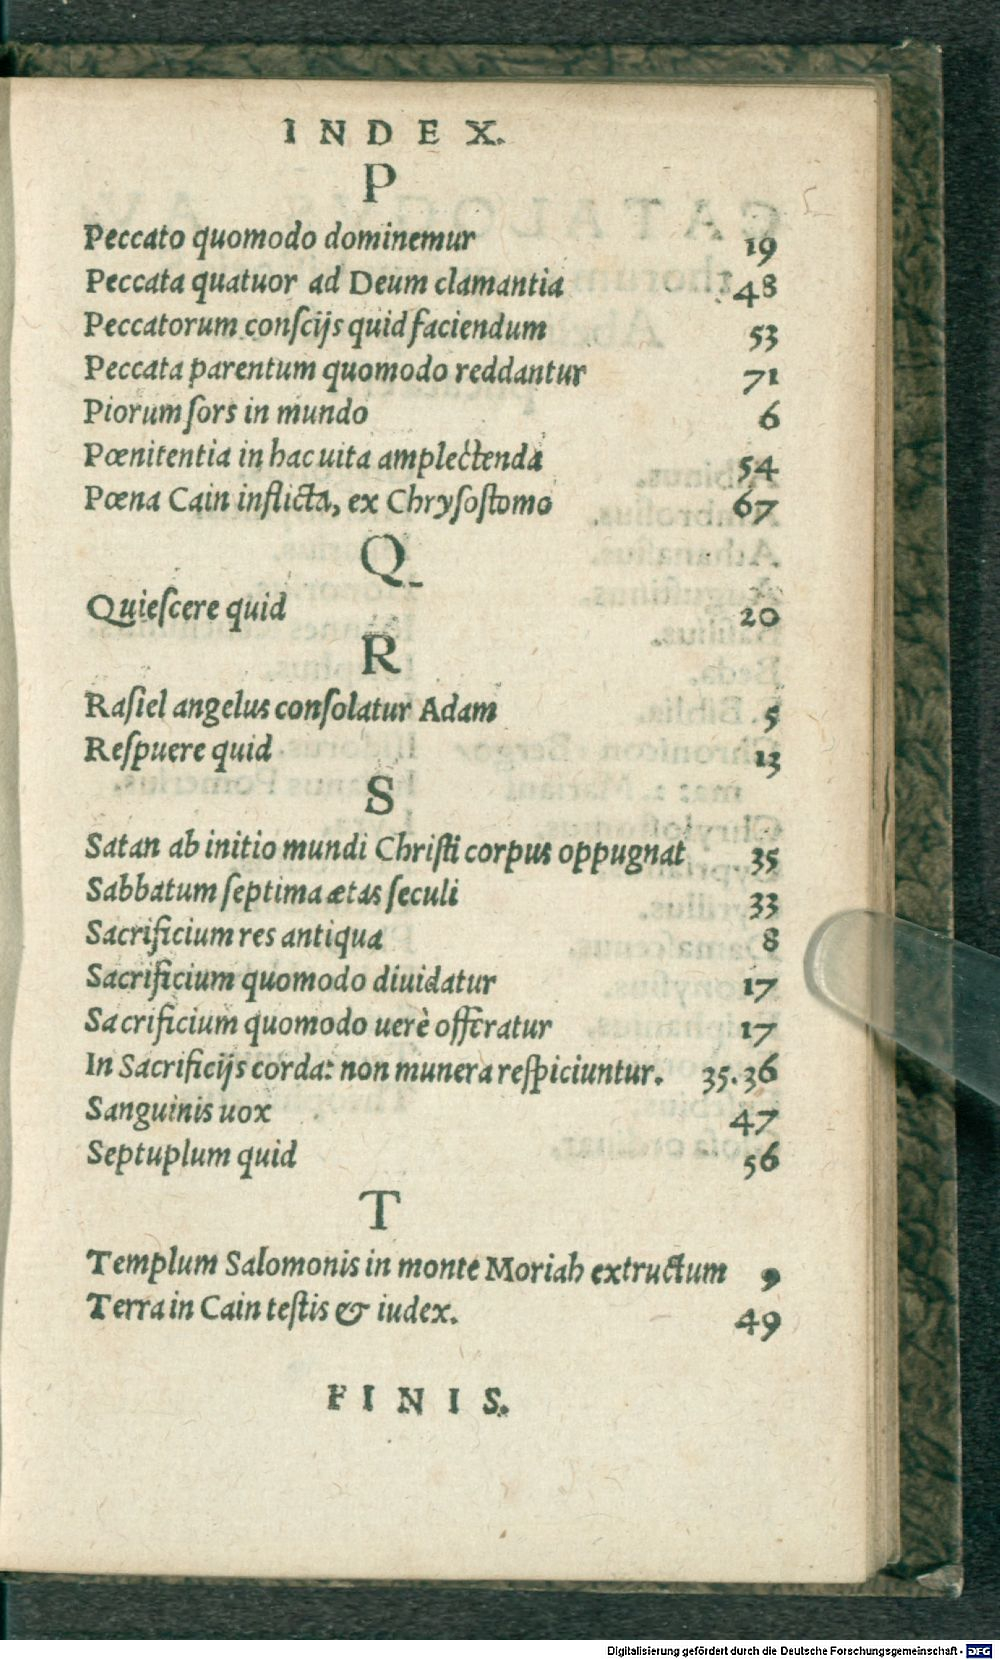 INDEX.
P
Peccato quomodo dominemur 19
Peccata quatuor ad Deum clamantia 48
Peccatorum conſcijs quid faciendum 53
Peccata parentum quomodo reddantur 71
Piorum ſors in mundo 6
Pœnitentia in hac uita amplectenda 54
Pœna Cain inflicta, ex Chryſoſtomo 67
Q
Quieſcere quid 20
R
Raſiel angelus conſolatur Adam 5
Reſpuere quid 13
S
Satan ab initio mundi Chriſti corpus oppugnat 35
Sabbatum ſeptima ætas ſeculi 33
Sacrificium res antiqua 8
Sacrificium quomodo diuidatur 17
Sacrificium quomodo uerè offeratur 17
In Sacrificijs corda: non munera reſpiciuntur. 35.36
Sanguinis uox 47
Septuplum quid 56
T
Templum Salomonis in monte Moriah extructum 9
Terra in Cain teſtis & iudex. 49
FINIS.
Digitalisierung gefördert durch die Deutsche Forschungsgemeinschaft - DFG